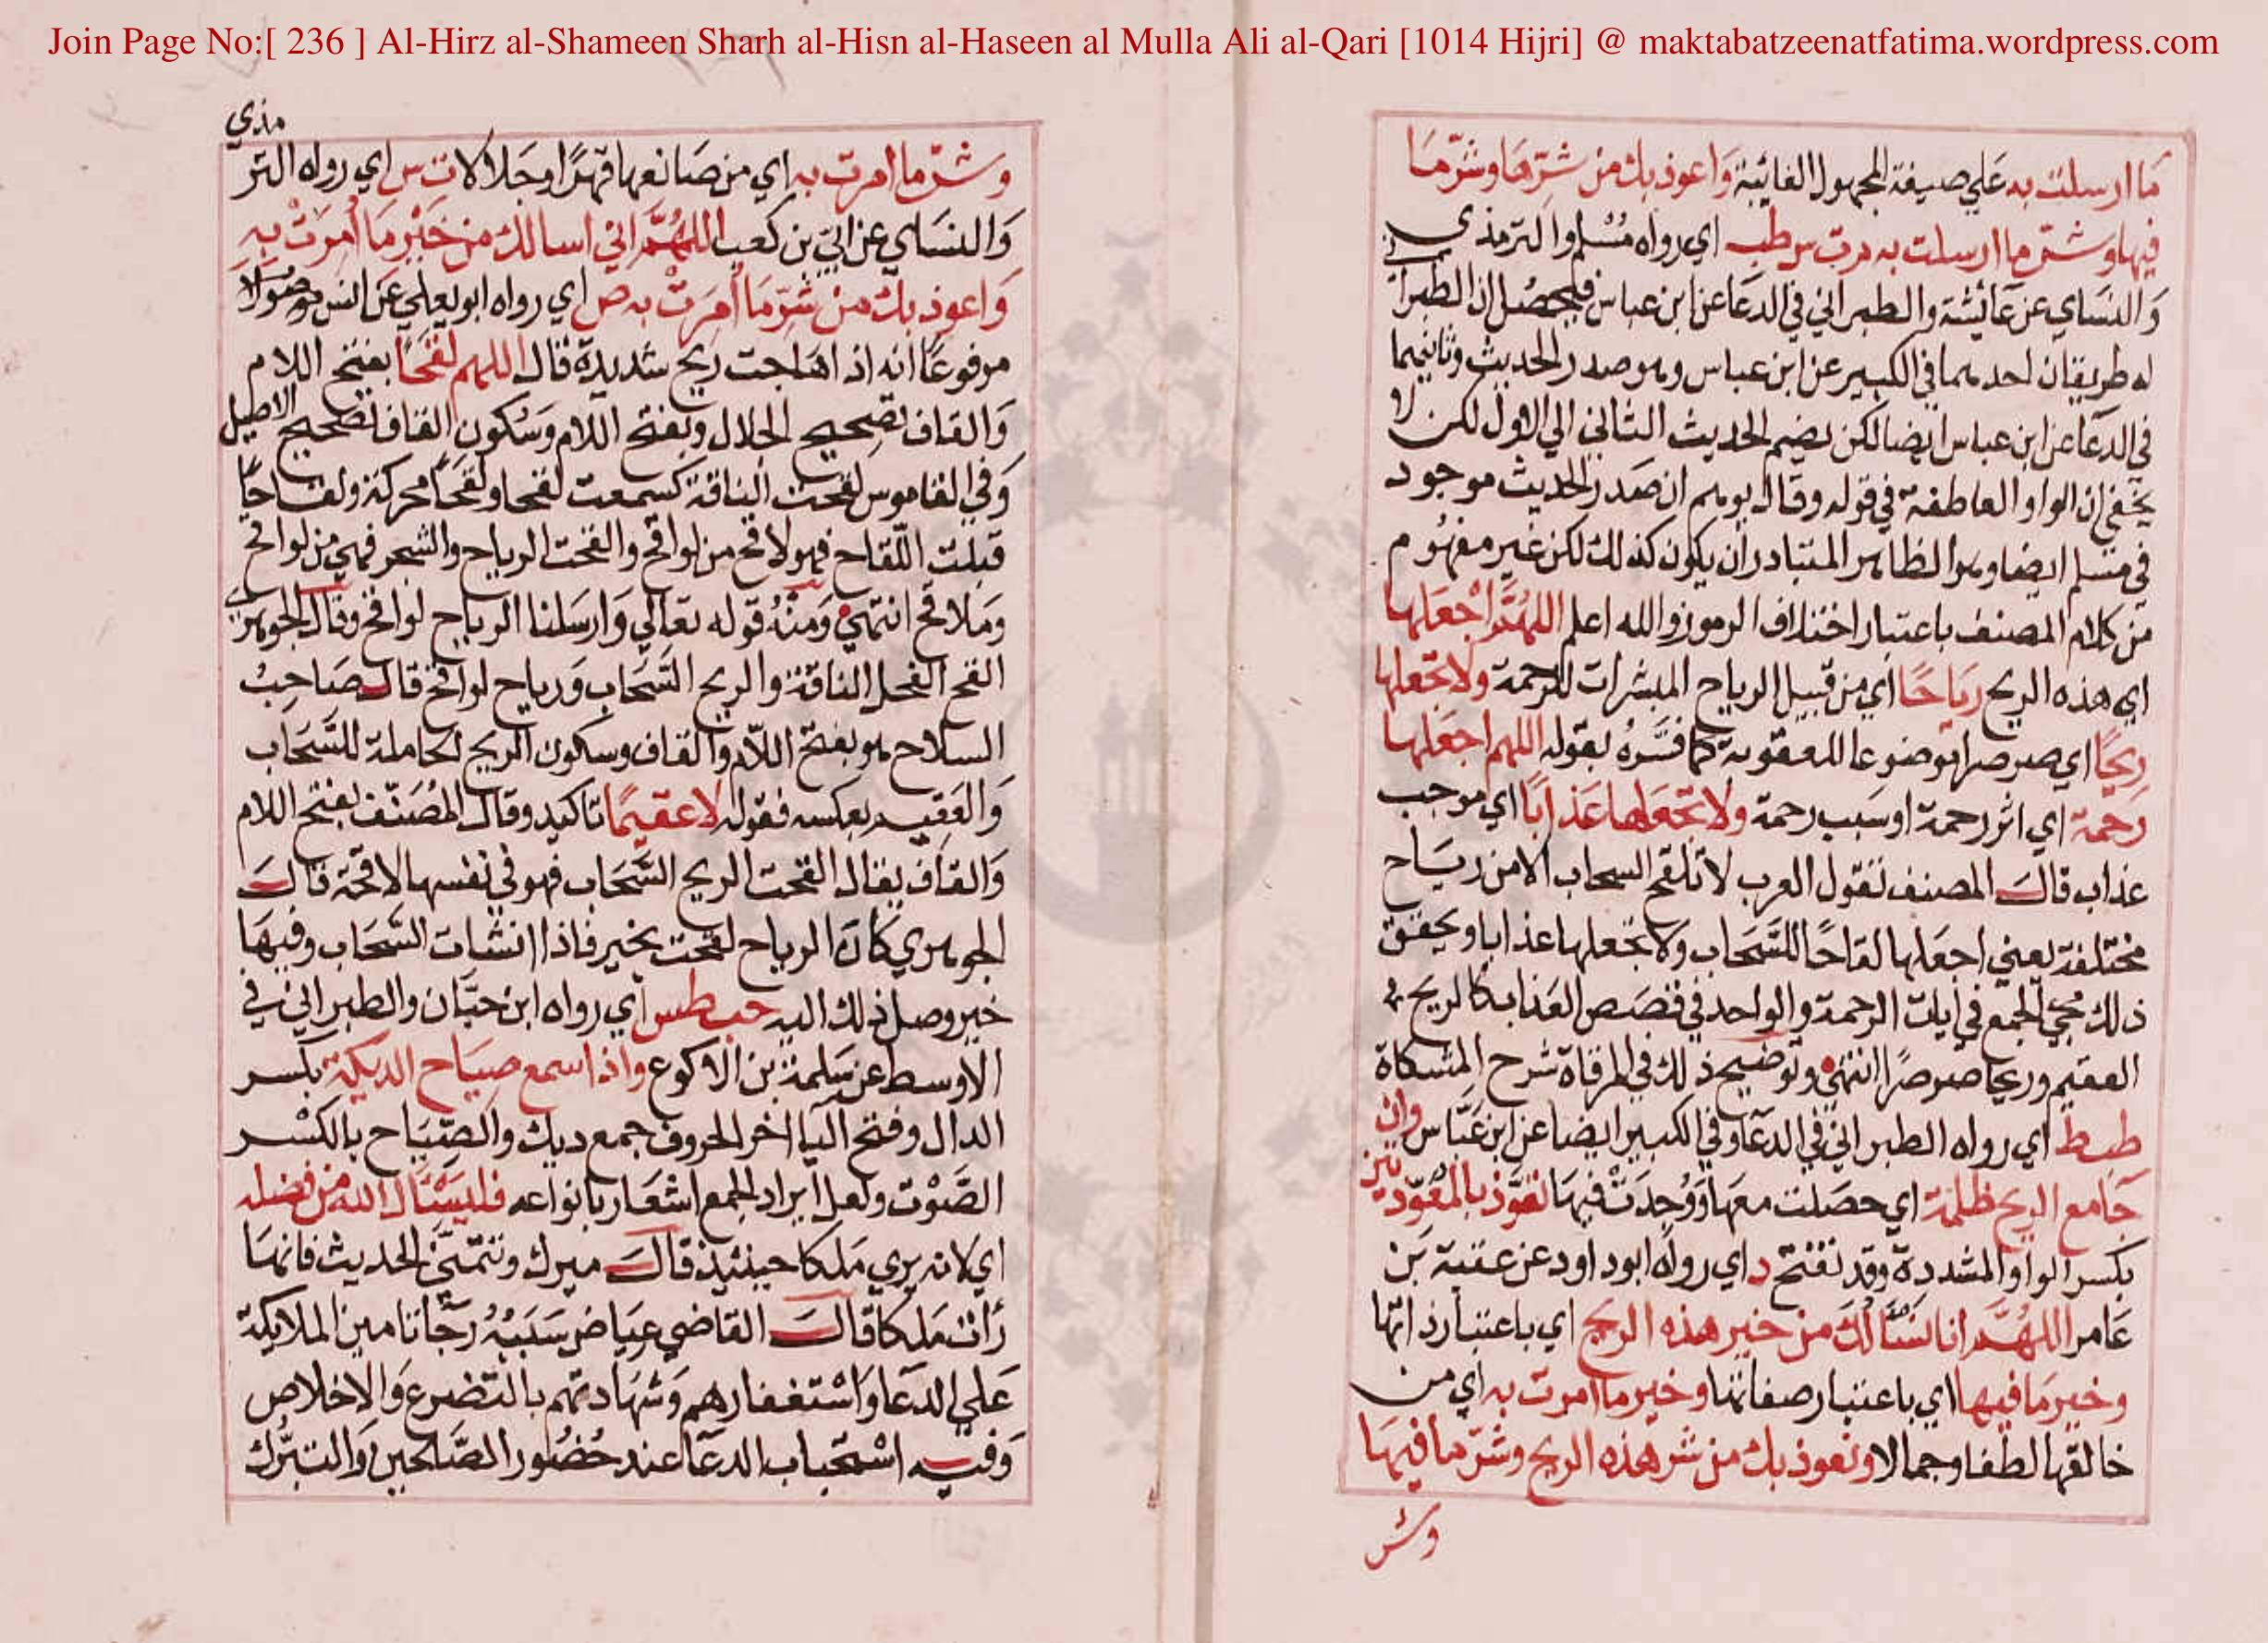 Join Page No:[ 236 ] Al-Hirz al-Shameen Sharh al-Hisn al-Haseen al Mulla Ali al-Qari [1014 Hijri] @ maktabatzeenatfatima.wordpress.com
ما ارسلت به علي صيغة المجهول الغائبة واعوذ بك من شرها وشر ما
فيها وشر ما ارسلت به م ت س طب اي رواه مسلم والترمذي
والنساي عن عائشة والطبراني في الدعا عن ابن عباس فليحصل ان الطبراني
له طريقان احدهما في الكبير عن ابن عباس وهو صدر الحديث وثانيهما
في الدعا عن ابن عباس ايضا لكن بضم الحديث الثاني الي الاول لكن لا
يخفي ان الواو العاطفة في قوله وقال يوهم ان صدر الحديث موجود
في مسلم ايضا وهو الظاهر المتبادر ان يكون كذلك لكن غير مفهوم
من كلام المصنف باعتبار اختلاف الرموز والله اعلم اللهم اجعلها
اي هذه الريح رياحا اي من قبيل الرياح المبشرات للرحمة ولا تجعلها
ريحا اي صرصرا موضوعا للعقوبة كما فسره بقوله اللهم اجعلها
رحمة اي اثر رحمة او سبب رحمة ولا تجعلها عذابا اي موجب
عذاب قال المصنف تقول العرب لا تلقح السحاب الا من رياح
مختلفة يعني اجعلها لقاحا للسحاب ولا تجعلها عذابا ويحقق
ذلك مجي الجمع في ايات الرحمة والواحد في قصص العذاب كالريح
العقيم وريحا صرصرا انتهي وتوضيح ذلك في المرقاة شرح المشكاة
طب ط اي رواه الطبراني في الدعا وفي الكبير ايضا عن ابن عباس وان
جا مع الريح ظلمة اي حصلت معها ووجدت فيها تعوذ بالمعوذتين
بكسر الواو المشددة وقد تفتح د اي رواه ابو داود عن عقبة بن
عامر اللهم انا نسالك من خير هذه الريح اي باعتبار ذاتها
وخير ما فيها اي باعتبار صفاتها وخير ما امرت به اي من
خالقها لطفا وجمالا ونعوذ بك من شر هذه الريح وشر ما فيها
وشر
وشر ما امرت به اي من صانعها قهرا وجلالا ت س اي رواه التر
مذي
والنساي عن ابي بن كعب اللهم اني اسالك من خير ما امرت به
واعوذ بك من شر ما امرت به ص اي رواه ابو يعلي عن انس موصولا
مرفوعا انه اذا هاجت ريح شديدة قال اللهم لقحا بفتح اللام
والقاف تصحيح الجلال وبفتح اللام وسكون القاف تصحيح الاصيل
وفي القاموس لقحت الناقة كسمعت لقحا ولقحا محركة ولقاحا
قبلت اللقاح فهو لاقح من لواقح والقحت الرياح والشجر فهي من لواقح
وملاقح انتهي ومنه قوله تعالي وارسلنا الرياح لواقح وقال الجوهري
القح الفحل الناقة والريح السحاب ورياح لواقح قال صاحب
السلاح هو بفتح اللام والقاف وسكون الريح الحاملة للسحاب
والعقيم بعكسه فقوله لا عقيما تاكيد وقال المصنف بفتح اللام
والقاف يقال القحت الريح السحاب فهو في نفسها لاقحة قال
الجوهري كان الرياح لقحت بخير فاذا انشات السحاب وفيها
خير وصل ذلك اليه حب طس اي رواه ابن حبان والطبراني في
الاوسط عن سلمة بن الاكوع واذا سمع صياح الديكة بكسر
الدال وفتح اليا اخر الحروف جمع ديك والصياح بالكسر
الصوت ولعل ايراد الجمع اشعار بانواعه فليسئال الله من فضله
اي لانه يري ملكا حينئذ قال ميرك وتتمة الحديث فانها
رات ملكا قال القاضي عياض سببه رجا تامين الملايكة
علي الدعا واستغفارهم وشهادتهم بالتضرع والاخلاص
وفيه استحباب الدعا عند حضور الصلحين والتبرك